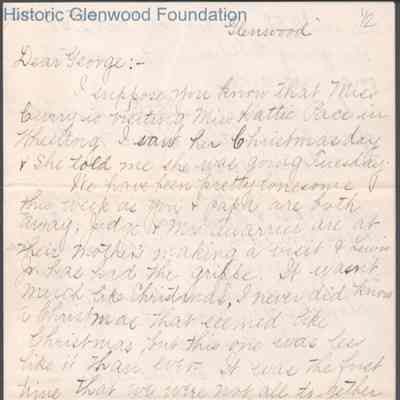 Historic Glenwood Foundation
Glenwood 1/2
Dear George:-
I suppose you know that Miss
Curry is visiting Miss Hattie Pace in
Wheeling. I saw her Christmas day
& she told me she was going Tuesday.
We have been pretty lonesome
this week as you & papa are both
away, & Mrs. Quarrier are at
their mother's making a visit & Lewis
Jr has had the grippe. It wasn't
much like Christmas, I never did know
a Christmas that seemed like
Christmas, but this one was less
like it than ever. It was the first
time that we were not all together